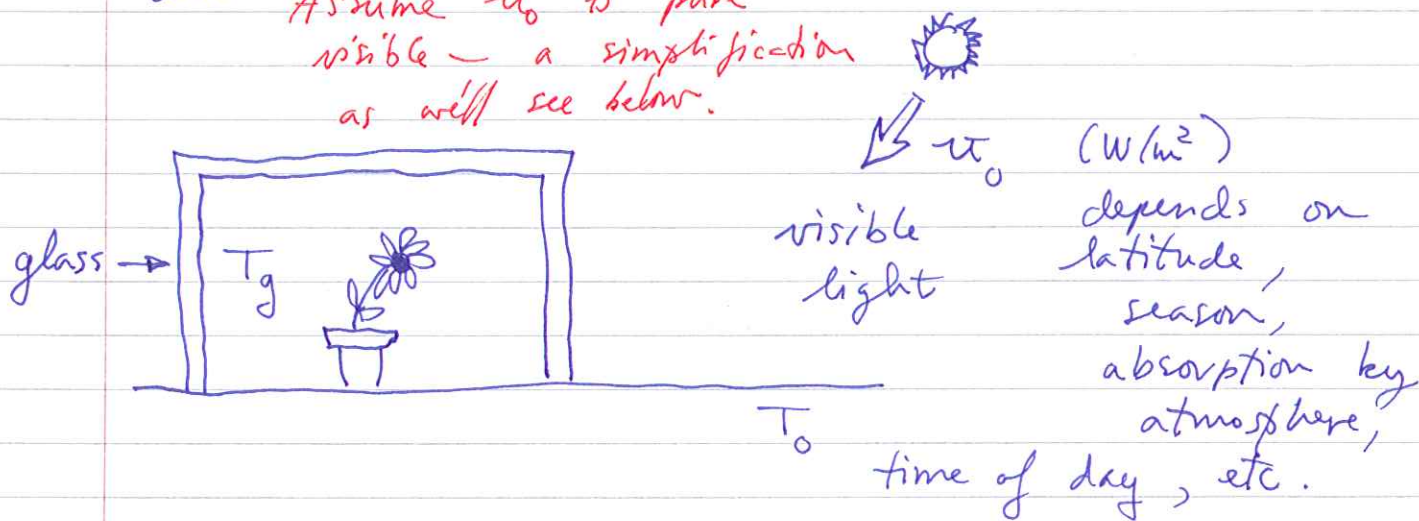 Assume u₀ is pure
visible — a simplification
as we'll see below.
u₀ (W/m²)
visible
light
depends on
latitude,
season,
absorption by
atmosphere,
time of day, etc.
glass →
T_g
T₀